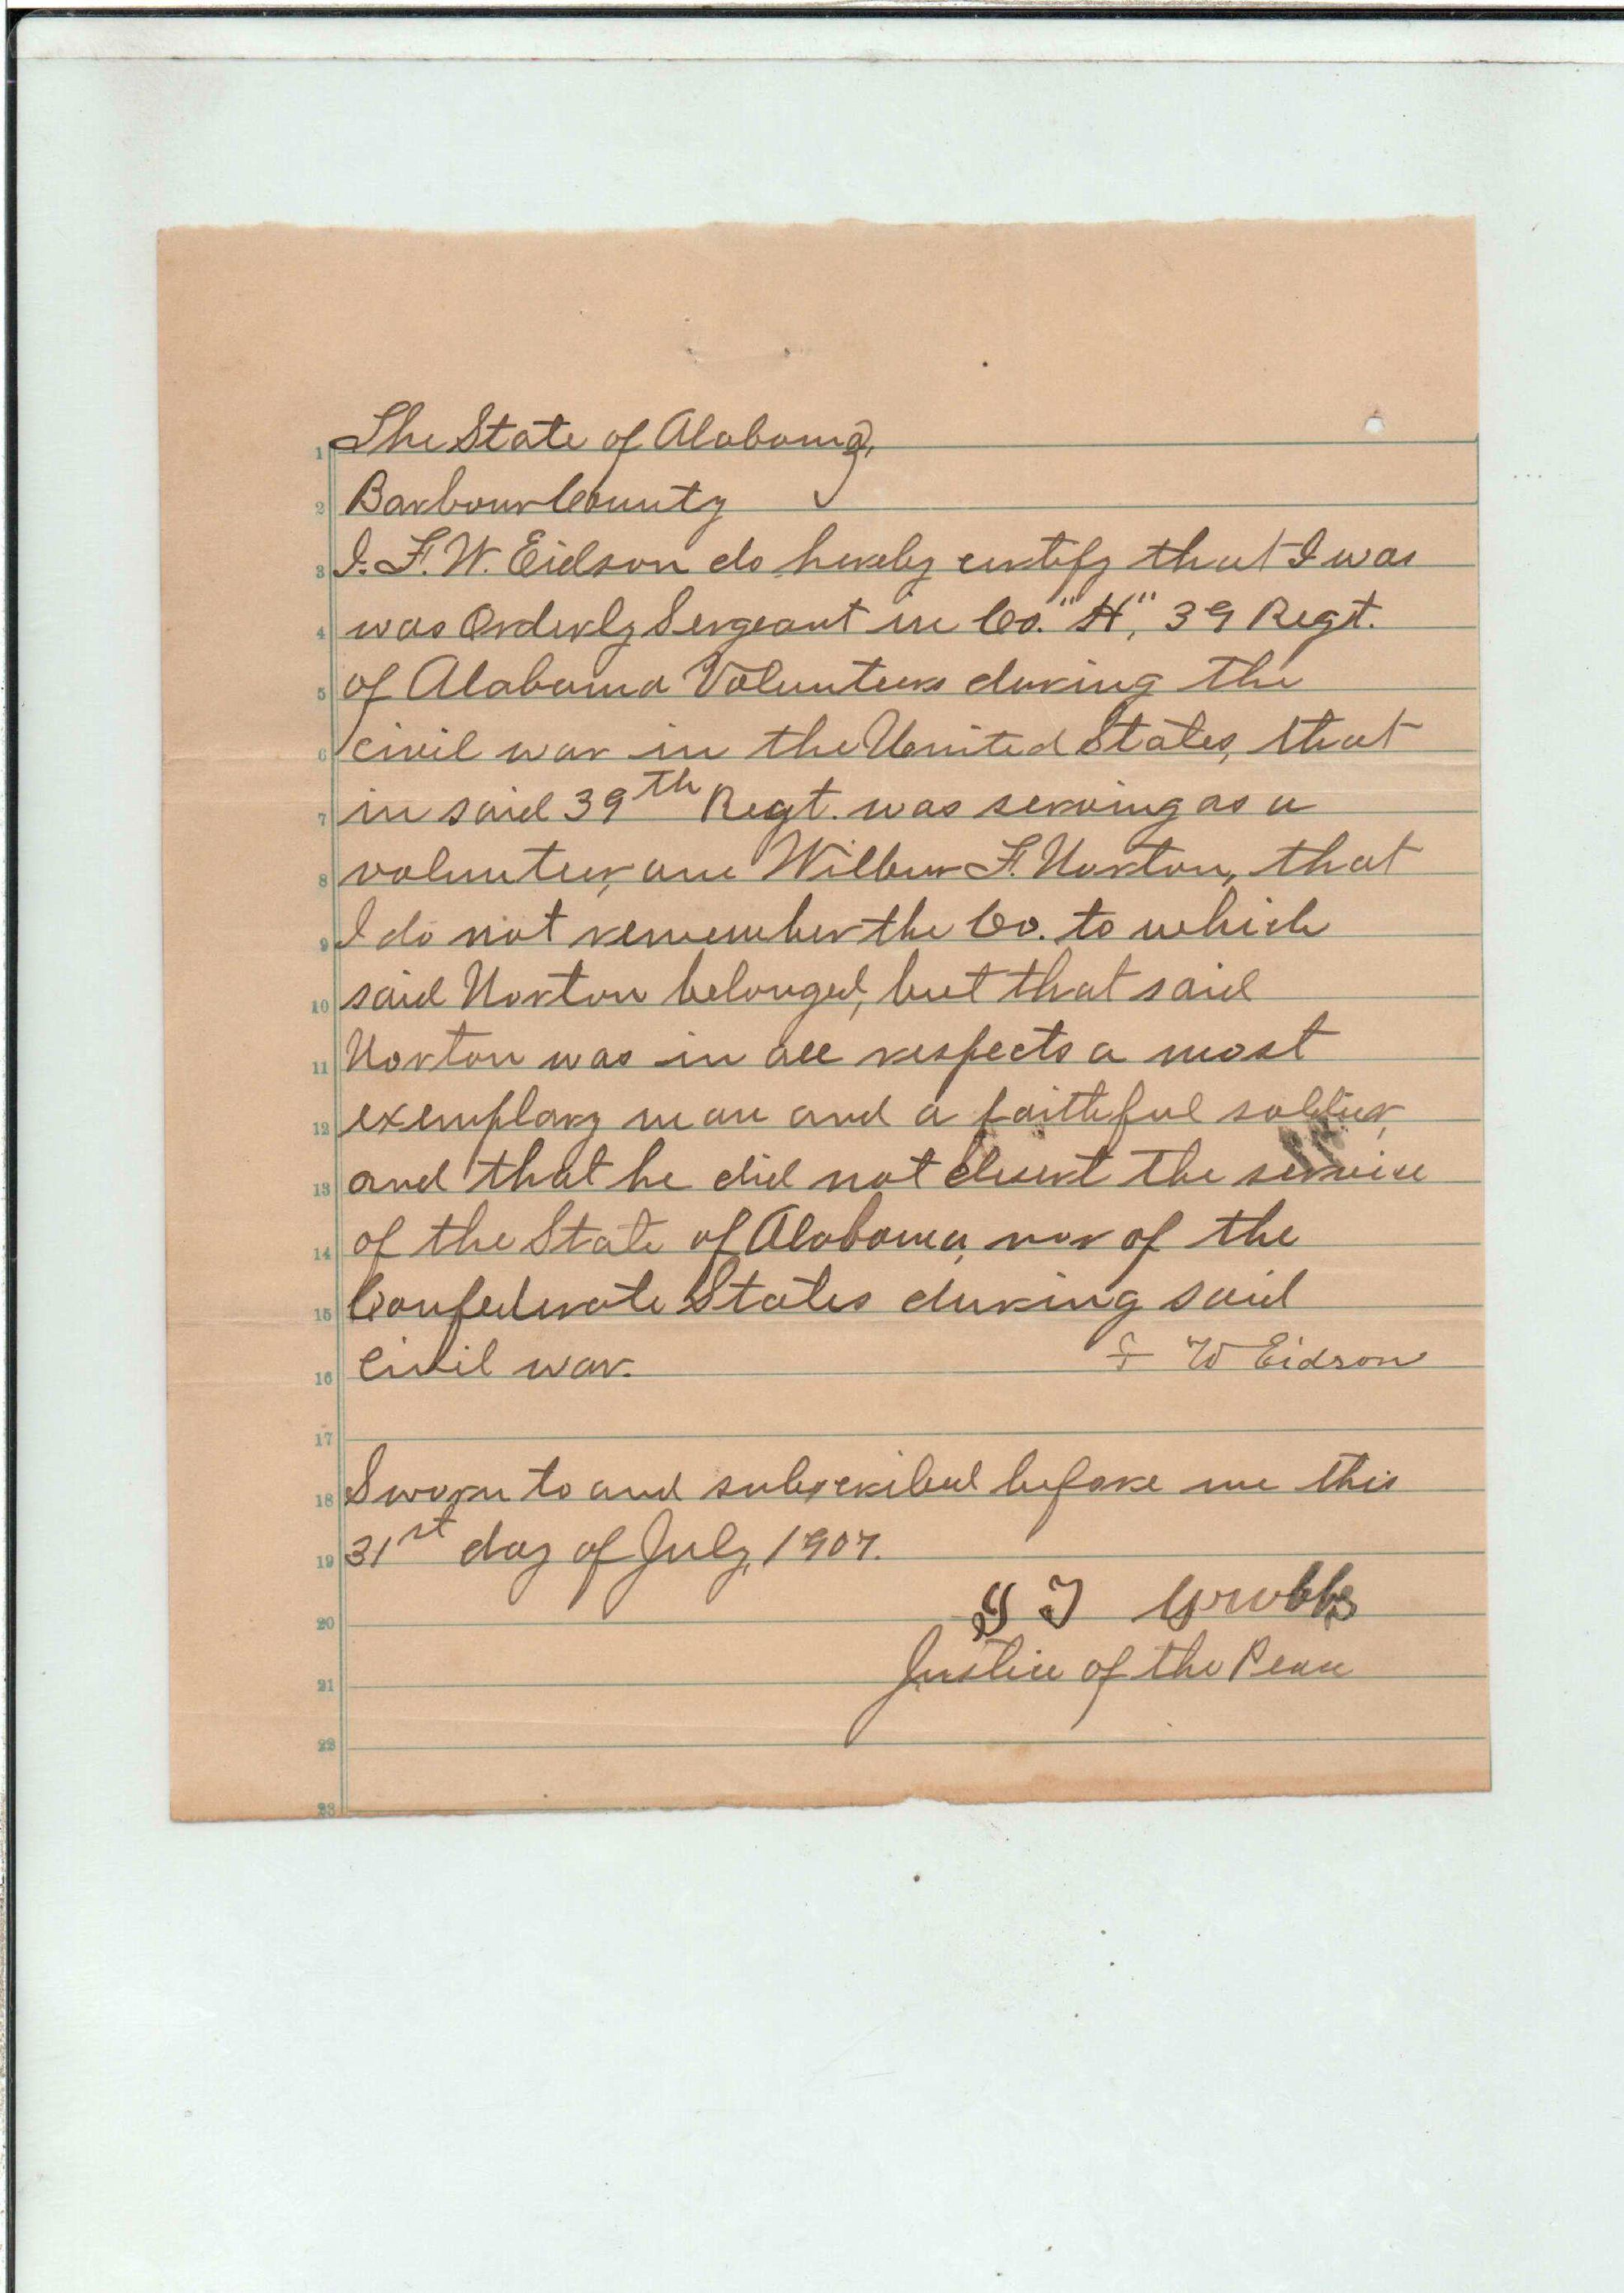 1 The State of Alabama,
2 Barbour County
3 I. F. W. Eidson do hereby certify that I was
4 was Orderly Sergeant in Co. "H", 39 Regt.
5 of Alabama Volunteers during the
6 civil war in the United States, that
7 in said 39th Regt. was serving as a
8 volunteer, one Wilbur F. Norton, that
9 I do not remember the Co. to which
10 said Norton belonged, but that said
11 Norton was in all respects a most
12 exemplary man and a faithful soldier,
13 and that he did not desert the service
14 of the State of Alabama, nor of the
15 Confederate States during said
16 civil war. F W Eidson
17
18 Sworn to and subscribed before me this
19 31st day of July, 1907.
20 Grubbs
21 Justice of the Peace
22
23